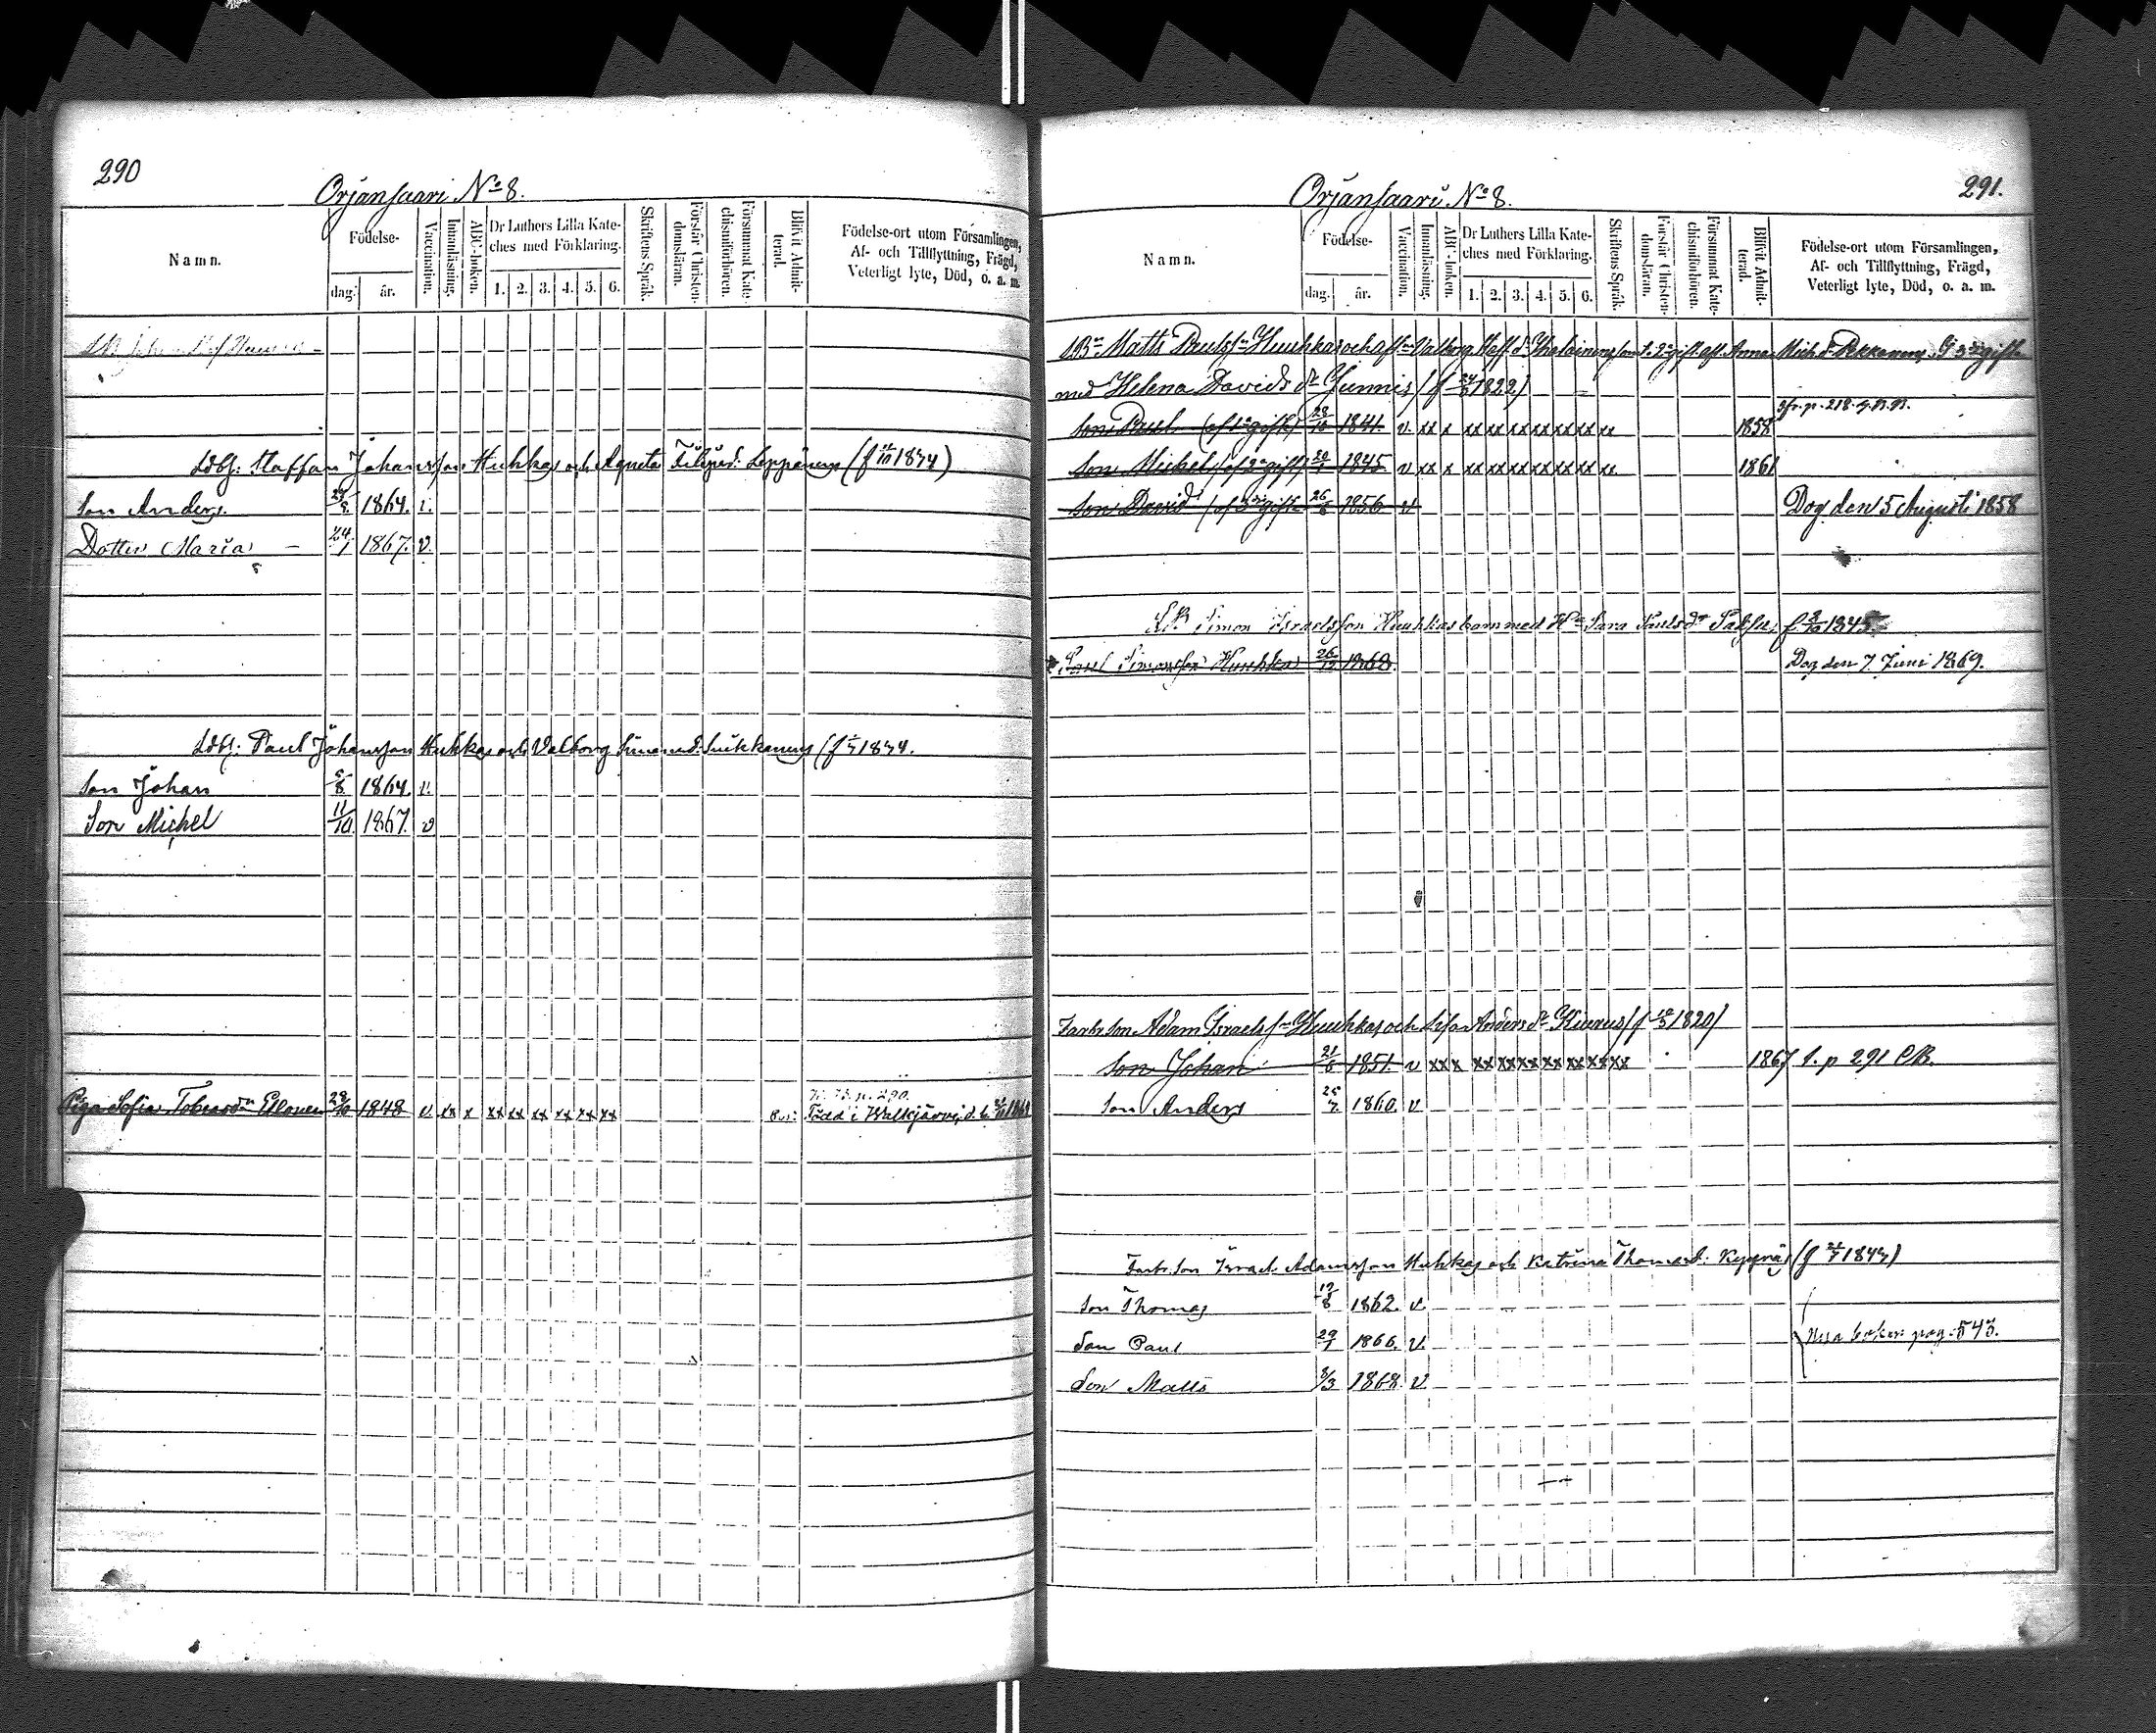 290
Orjansaari No 8.
Namn.
Födelse-
dag.
år.
Vaccination.
Innanläsning.
ABC-boken.
Dr Luthers Lilla Kate-
ches med Förklaring.
1. 2. 3. 4. 5. 6.
Skriftens Språk.
Förstår Christen-
domsläran.
Försummat Kate-
chismiförhören.
Blifvit Admit-
terad.
Födelse-ort utom Församlingen,
Af- och Tillflyttning, Frägd,
Veterligt lyte, Död, o. a. m.
Staffan Johansson Huhkas och Agneta Filipsd: Leppänens
Son Anders 1864.
Dotter Maria 24/1 1867. v.
Paul Johansson Huhkas och Valborg Simonsd:
Son Johan 5/8 1864 v.
Son Michel 11/10 1867. v
p. 290.
Piga Sofia Tobiasdr Ellonen 28/10 1848 v xx x xx xx xx xx xx xx Född i Walkjärvi,
291.
Orjansaari No 8.
Namn.
Födelse-
dag.
år.
Vaccination.
Innanläsning.
ABC-boken.
Dr Luthers Lilla Kate-
ches med Förklaring.
1. 2. 3. 4. 5. 6.
Skriftens Språk.
Förstår Christen-
domsläran.
Försummat Kate-
chismiförhören.
Blifvit Admit-
terad.
Födelse-ort utom Församlingen,
Af- och Tillflyttning, Frägd,
Veterligt lyte, Död, o. a. m.
Matts Paulsn Huuhkas och afl. Valborg Staff. dr Ihalainens samt i 2a gift. afl. Anna Mich. dr Pekkanens. I 3dje gift
med Helena Davids dr
p. 218.
Son Paul (af 1a gift) 28/10 1841 v. xx x xx xx xx xx xx xx xx 1858
Son Michel (af 2a gift) 1845 v xx x xx xx xx xx xx xx xx 1861
Son David (af 3dje gift 26/6 1856 v Dog den 5 Augusti 1858
Simon Israelsson Huuhkas Sara Paulsdr
Paul Simonsson Huuhkas 26/12 1868 Dog den 7 Juni 1869.
Farbr. son Adam Israels sn Huuhkas och Anders dr 1820)
Son Johan 21/6 1851. v xx x xx xx xx xx xx xx xx 1867 p 291
Son Anders 25/7 1860. v
Farbr. son Israel Adamsson Huhkas och Katrina Thomasd:
Son Thomas 1862. v.
Son Paul 29/1 1866. v.
Son Matts 3/3 1868 v
Nya boken pag. 545.